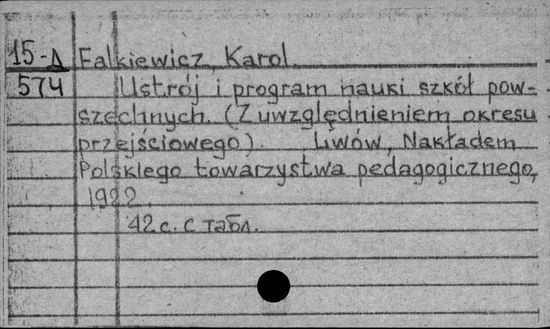 15-Д Falkiewicz, Karol.
574 Ustrój i program nauki szkół pow-
szechnych. (Z uwzględnieniem okresu
przejściowego). Lwów, Nakładem
Polskiego towarzystwa pedagogicznego,
1922.
42 с. с табл.